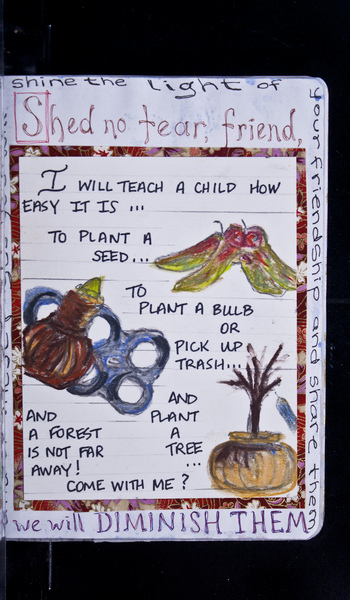 shine the light of
your friendship and share them
Shed no tear, friend,
I WILL TEACH A CHILD HOW
EASY IT IS ...
TO PLANT A
SEED...
TO
PLANT A BULB
OR
PICK UP
TRASH...
AND
PLANT
A
TREE
...
AND
A FOREST
IS NOT FAR
AWAY!
COME WITH ME?
we will DIMINISH THEM